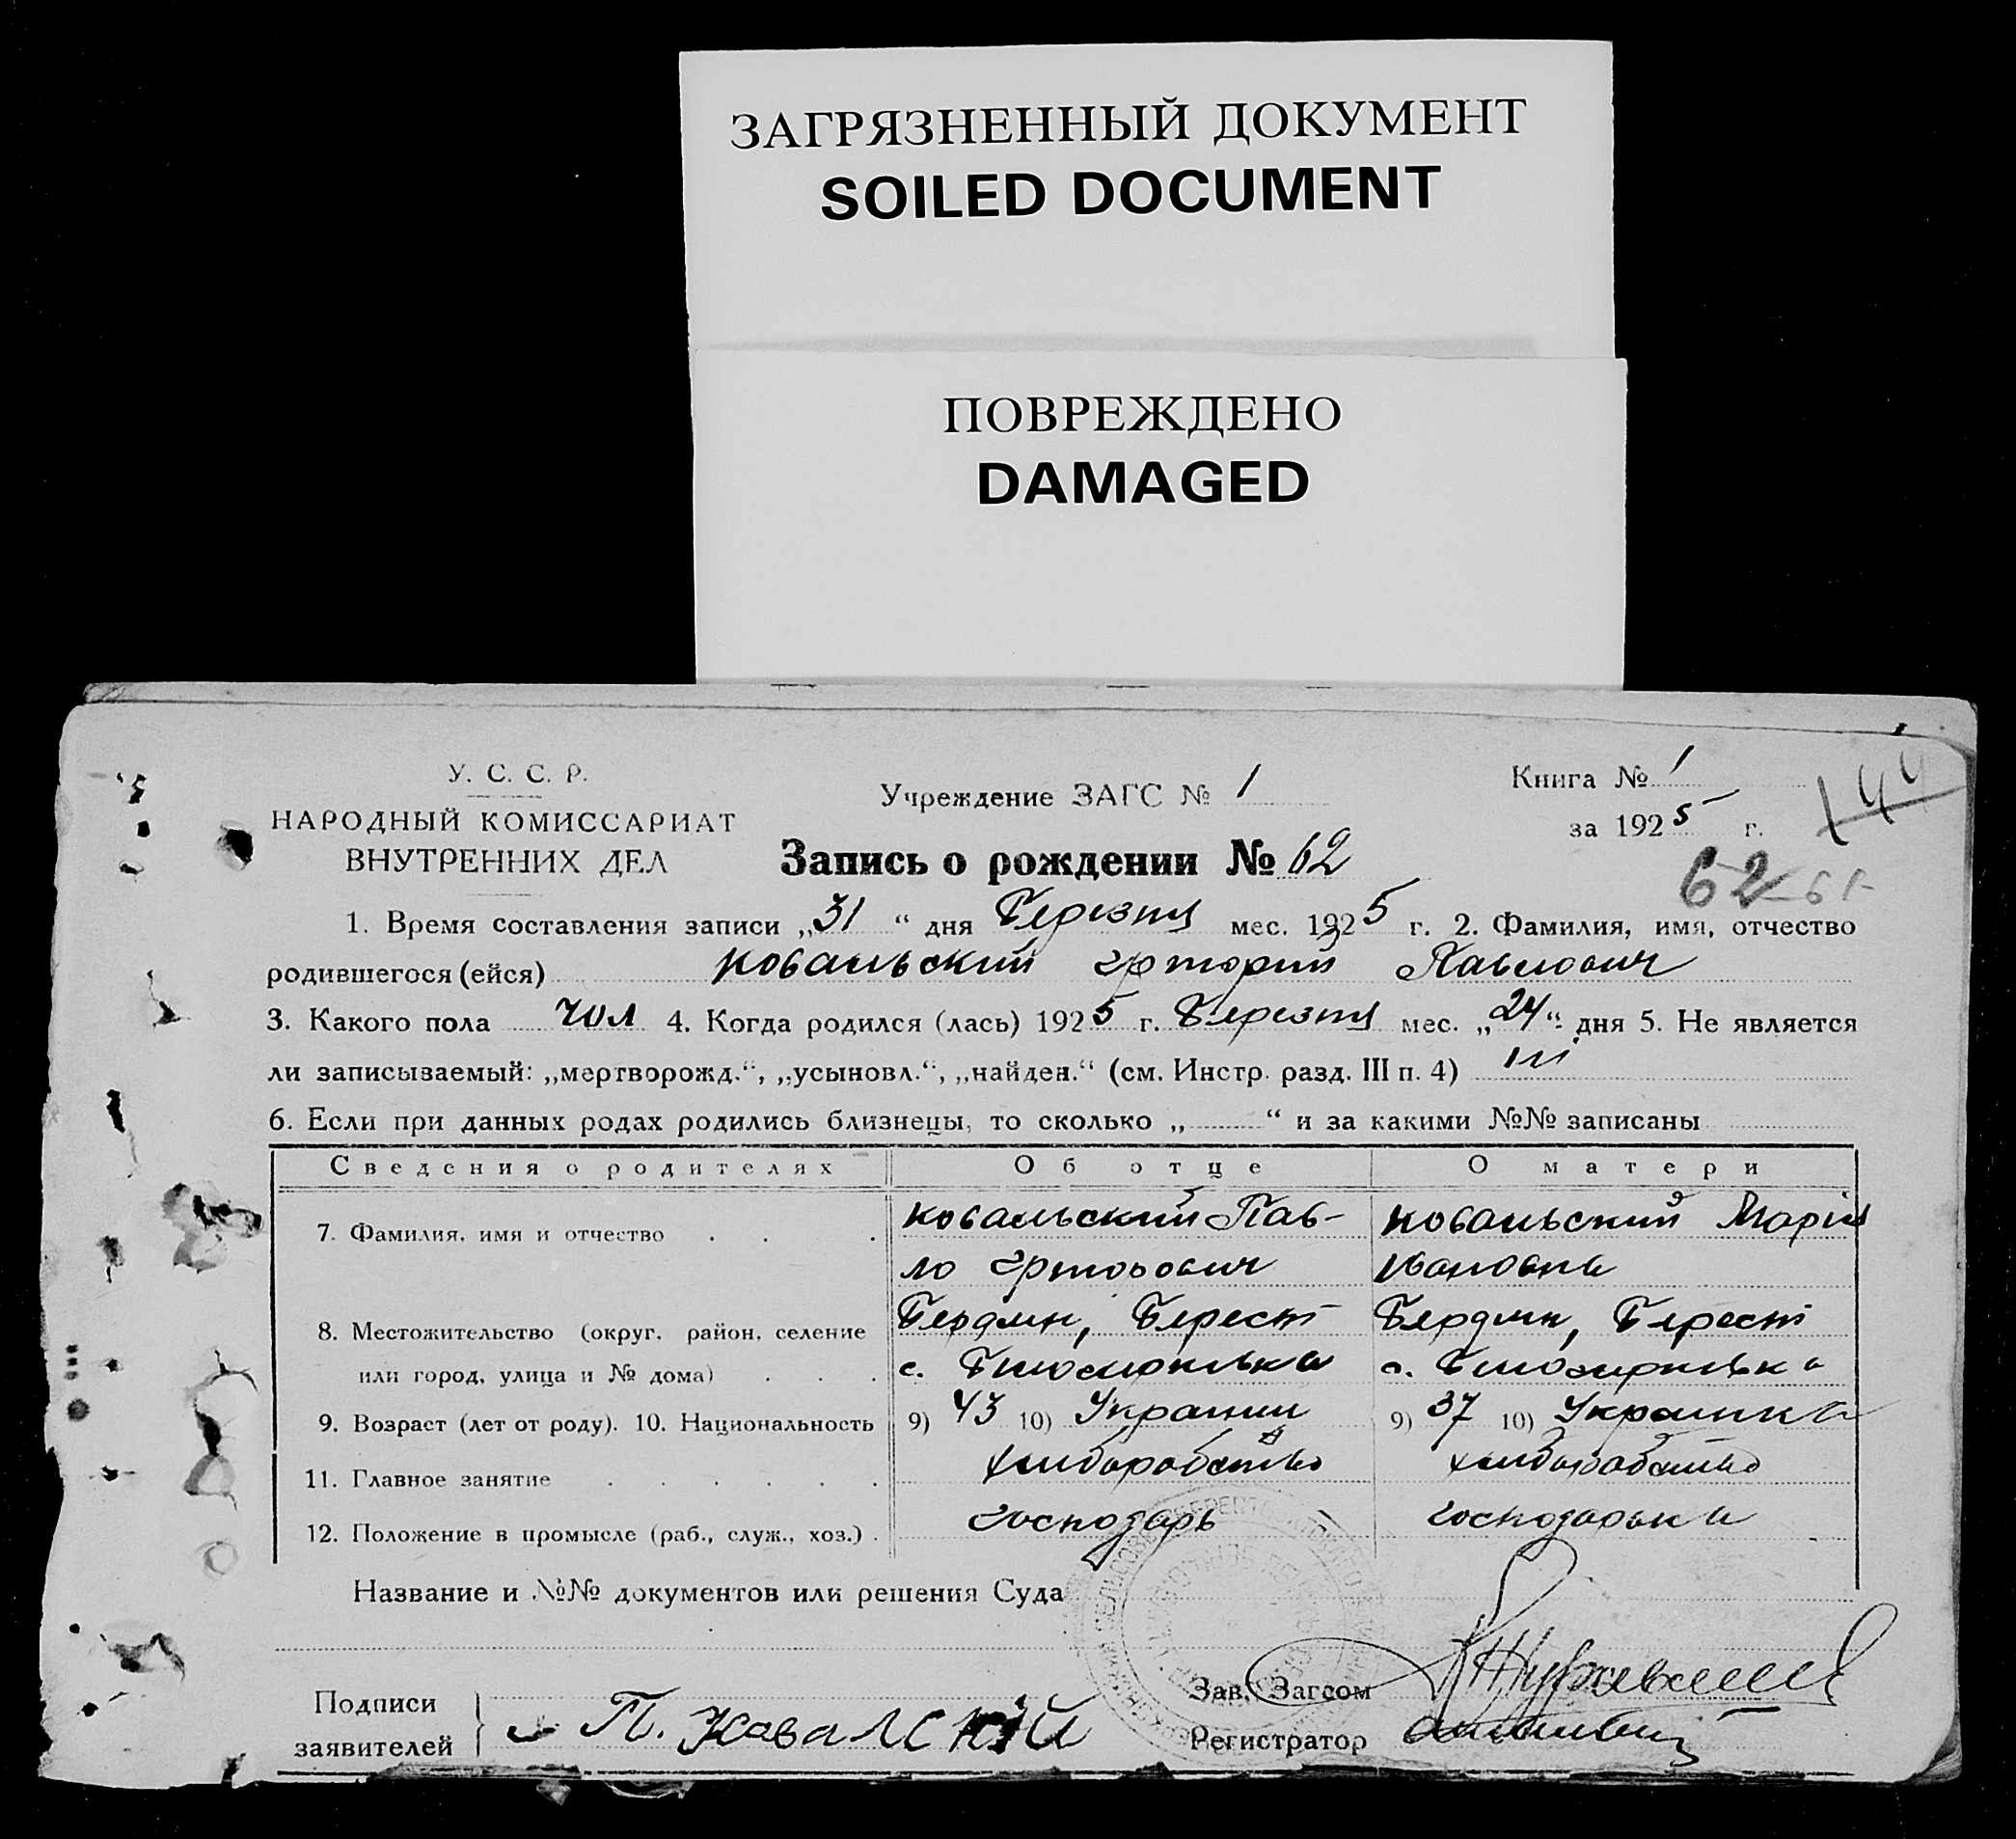 ЗАГРЯЗНЕННЫЙ ДОКУМЕНТ
SOILED DOCUMENT
ПОВРЕЖДЕНО
DAMAGED
У. С. С. Р.
НАРОДНЫЙ КОМИССАРИАТ
ВНУТРЕННИХ ДЕЛ
Учреждение ЗАГС № 1
Книга № 1
за 1925 г.
144
Запись о рождении № 62
62 61
1. Время составления записи „31“ дня Березня мес. 1925 г. 2. Фамилия, имя, отчество
родившегося (ейся) Ковальский Павлович
3. Какого пола чол 4. Когда родился (лась) 1925 г. Березня мес. „24“ дня 5. Не является
ли записываемый: „мертворожд.“, „усыновл.“, „найден.“ (см. Инстр. разд. III п. 4) ні
6. Если при данных родах родились близнецы, то сколько „ “ и за какими №№ записаны
Сведения о родителях Об отце О матери
7. Фамилия, имя и отчество Ковальский Пав- Ковальский Марія
ло Івановна
8. Местожительство (округ, район, селение Бердян, Берест Бердян, Берест
или город, улица и № дома) с. с.
9. Возраст (лет от роду). 10. Национальность 9) 43 10) Украинц 9) 37 10) Украинка
11. Главное занятие хлиборобство хлиборобство
12. Положение в промысле (раб., служ., хоз.) господарь господарька
Название и №№ документов или решения Суда
Подписи
заявителей П. Ковалский
Зав. Загсом
Регистратор